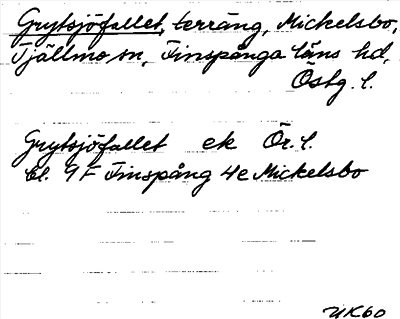 Grytsjöfallet, terräng, Mickelsbo,
Tjällmo sn, Finspånga läns hd,
Östg. l.
Grytsjöfallet ek Ör. l.
bl. 9F Finspång 4e Mickelsbo
UK60